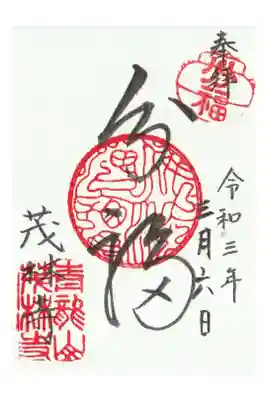 奉拝
分福
令和三年
三月六日
分福
茂林寺
青龍山
茂林寺